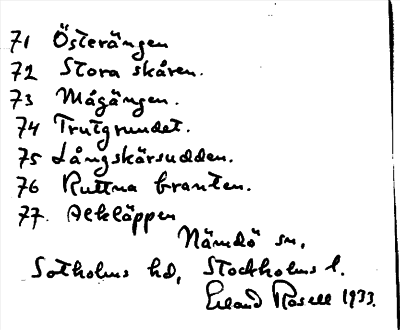 71 Österängen
72 Stora skären.
73 Mågängen.
74 Trutgrundet.
75 Långskärsudden.
76 Ruttna branten.
77. Alkläppen
Nämdö sn,
Sotholms hd, Stockholms l.
Erland Rosell 1933.